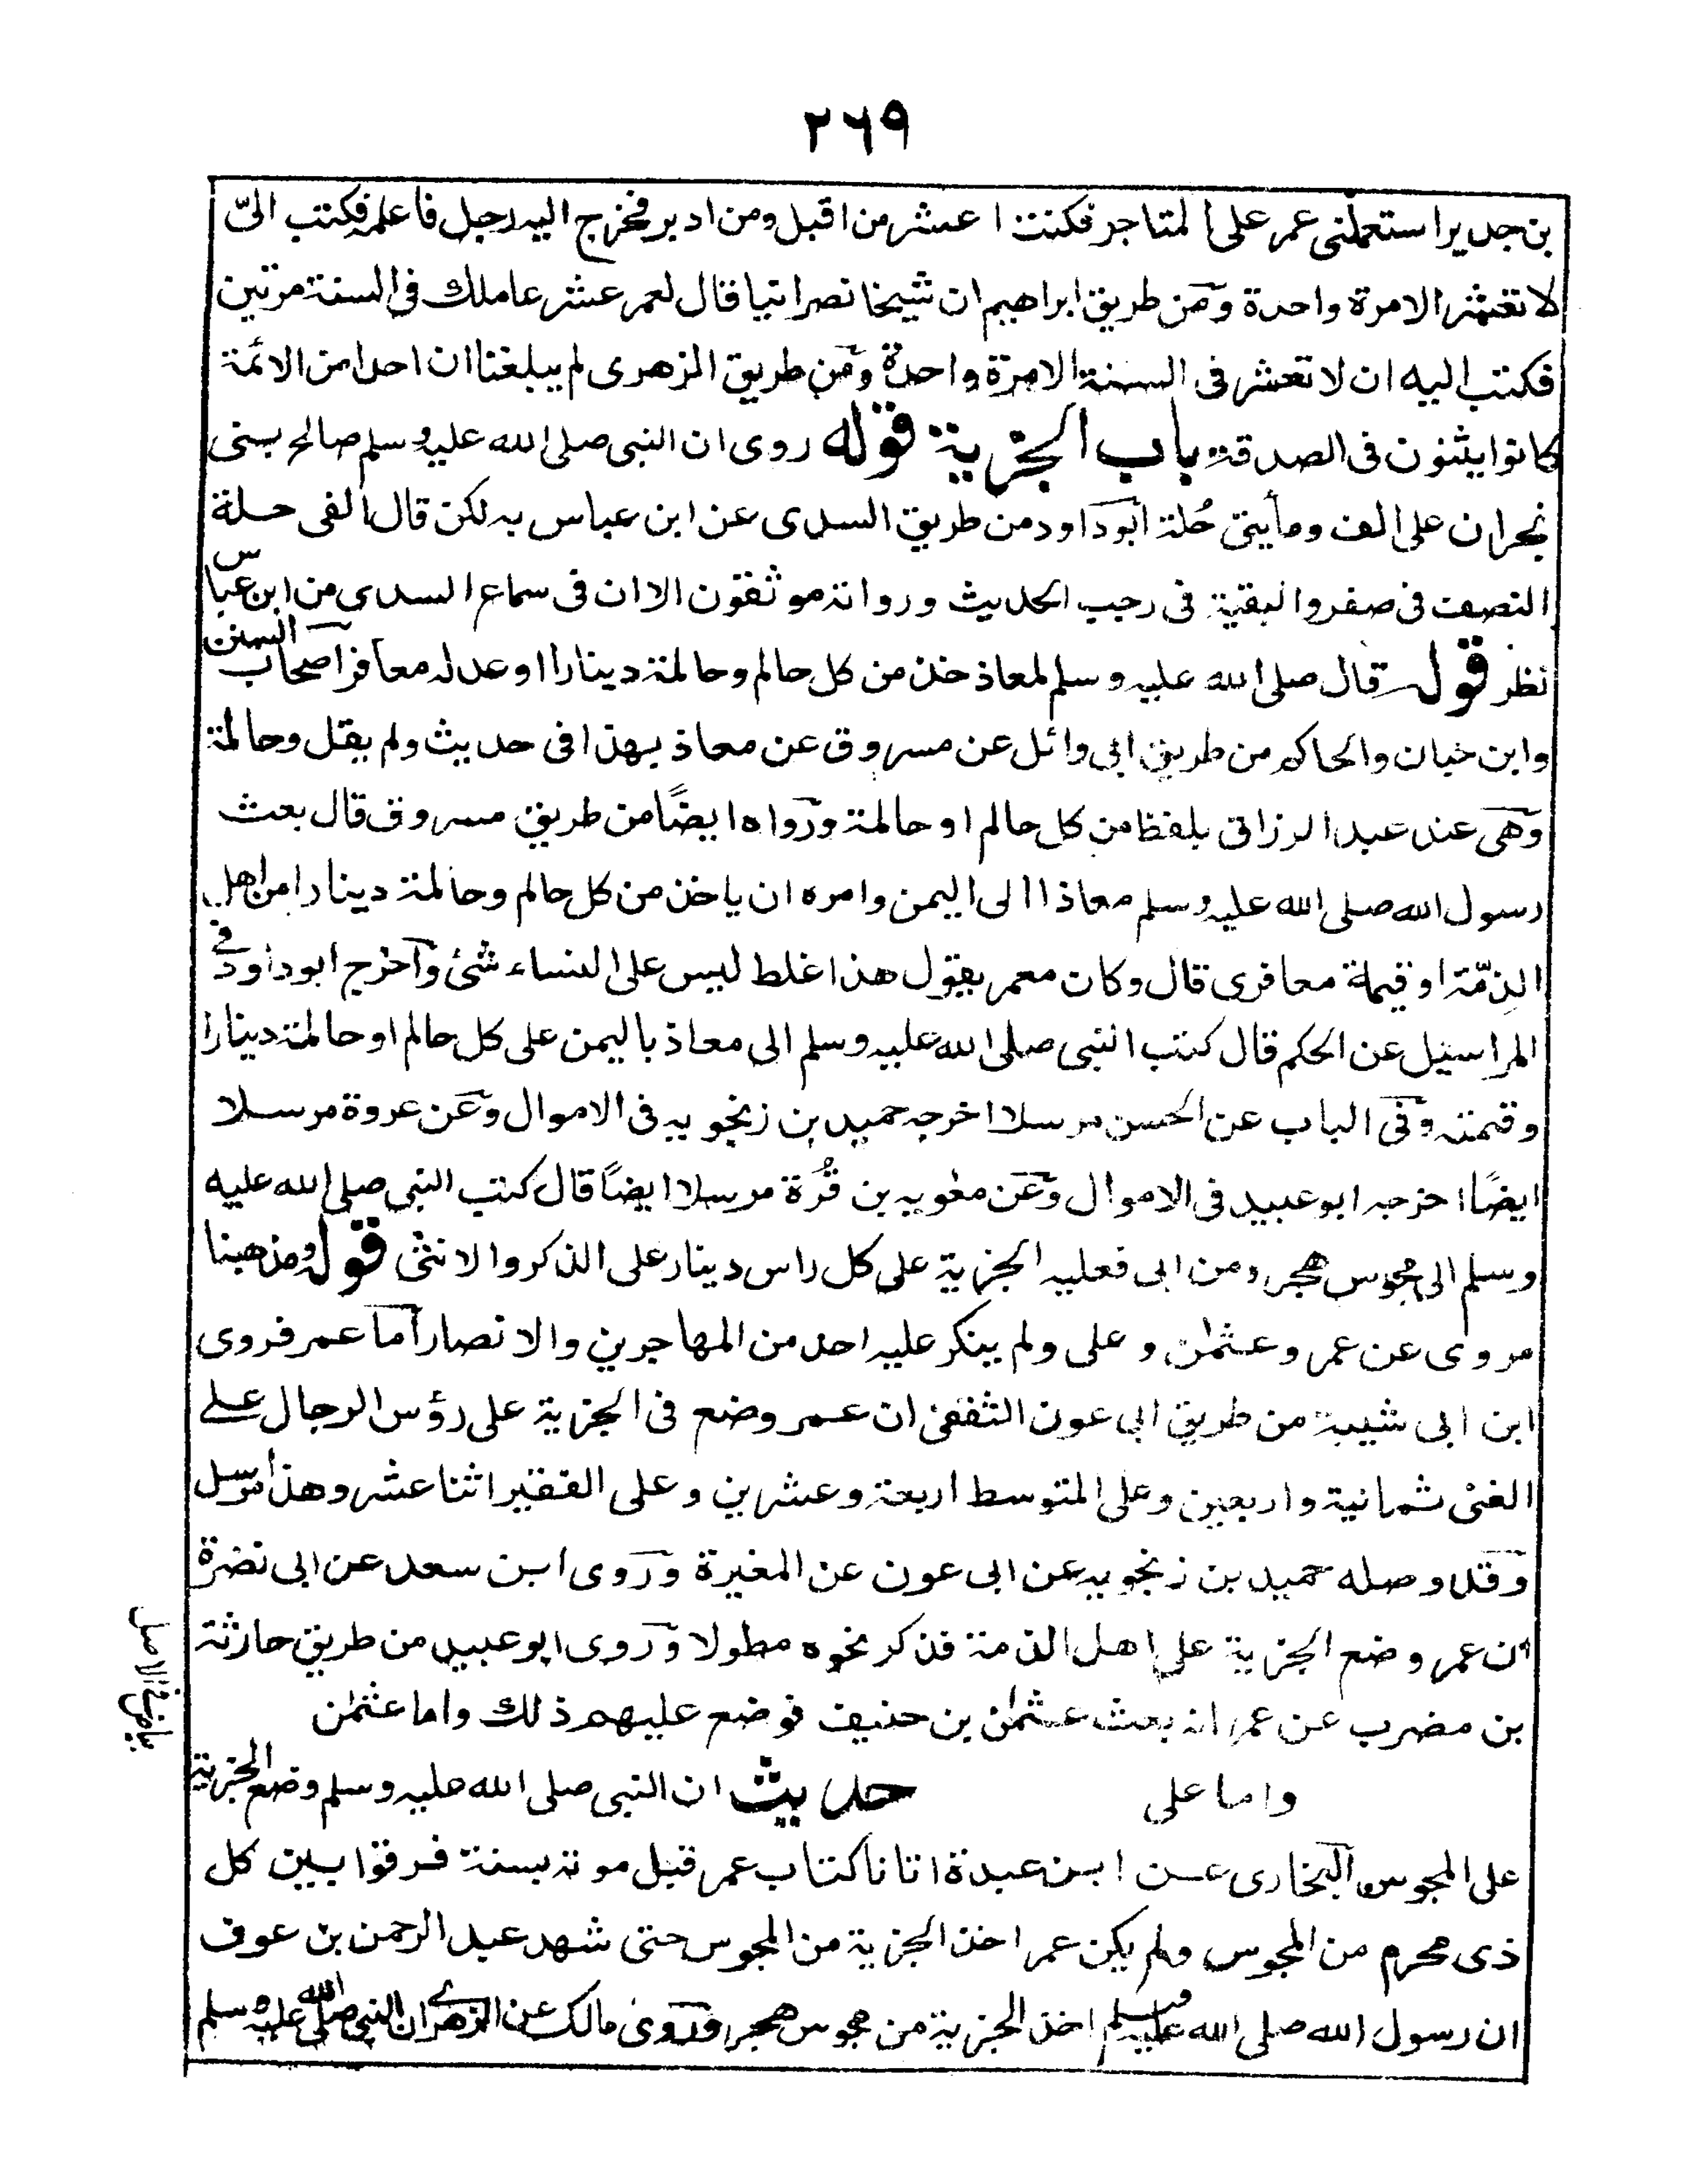 ٢٦٩
بن جدير استعملنى عمر على المتاجر فكنت اعشر من اقبل ومن ادبر فخرج اليه رجل فاعلمه فكتب الىّ
لا تعشر الا مرة واحدة ومن طريق ابراهيم ان شيخا نصرانيا قال لعمر عشر عاملك فى السنة مرتين
فكتب اليه ان لا تعشر فى السنة الا مرة واحدة ومن طريق الزهرى لم يبلغنا ان احدا من الائمة
كانوا يثنون فى الصدقة باب الجزية قوله روى ان النبى صلى الله عليه وسلم صالح بنى
نجران على الف ومأيتى حُلة ابو داود من طريق السدى عن ابن عباس به لكن قال الفى حلة
النصف فى صفر والبقية فى رجب الحديث ورواته موثقون الا ان فى سماع السدى من ابن عباس
نظر قوله قال صلى الله عليه وسلم لمعاذ خذ من كل حالم وحالمة دينارا او عدله معافر اصحاب السنن
وابن حبان والحاكم من طريق ابى وائل عن مسروق عن معاذ بهذا فى حديث ولم يقل وحالمة
وهى عند عبد الرزاق بلفظ من كل حالم او حالمة ورواه ايضًا من طريق مسروق قال بعث
رسول الله صلى الله عليه وسلم معاذا الى اليمن وامره ان ياخذ من كل حالم وحالمة دينارا من اهل
الذمّة او قيمة معافرى قال وكان معمر يقول هذا غلط ليس على النساء شئ وآخرج ابو داود فى
المراسيل عن الحكم قال كتب النبى صلى الله عليه وسلم الى معاذ باليمن على كل حالم او حالمة دينارا
وقيمته وفى الباب عن الحسن مرسلا اخرجه حميد بن زنجويه فى الاموال وعن عروة مرسلا
ايضًا اخرجه ابو عبيد فى الاموال وعن معٰوية بن قُرة مرسلا ايضًا قال كتب النبى صلى الله عليه
وسلم الى مجوس هجر ومن ابى فعليه الجزية على كل راس دينار على الذكر والانثى قوله ومذهبنا
مروى عن عمر وعثمٰن وعلى ولم ينكر عليه احد من المهاجرين والانصار اما عمر فروى
ابن ابى شيبة من طريق ابى عون الثقفى ان عمر وضع فى الجزية على رؤس الرجال على
الغنى ثمانية واربعين وعلى المتوسط اربعة وعشرين وعلى الفقير اثنا عشر وهذا مرسل
وقد وصله حميد بن زنجويه عن ابى عون عن المغيرة وروى ابن سعد عن ابى نضرة
ان عمر وضع الجزية على اهل الذمة فذكر نحوه مطولا وروى ابو عبيد من طريق حارثة
بن مضرب عن عمر انه بعث عثمٰن بن حنيف فوضع عليهم ذلك واما عثمٰن
واما على حديث ان النبى صلى الله عليه وسلم وضع الجزية
على المجوس البخارى عن ابن عبدة اتانا كتاب عمر قبل موته بسنة فرقوا بين كل
ذى محرم من المجوس ولم يكن عمر اخذ الجزية من المجوس حتى شهد عبد الرحمن بن عوف
ان رسول الله صلى الله عليه وسلم اخذ الجزية من مجوس هجر وروى مالك عن الزهرى ان النبى صلى الله عليه وسلم
بياض فى الاصل